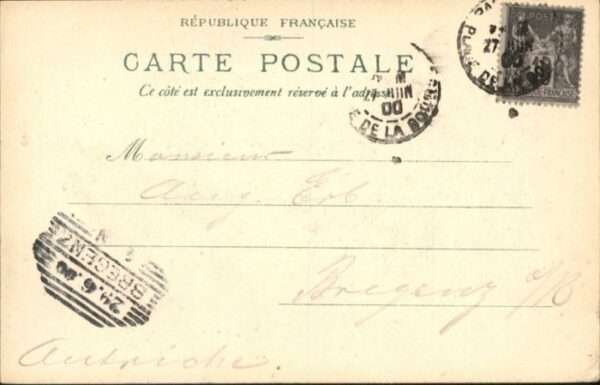 RÉPUBLIQUE FRANÇAISE
CARTE POSTALE
Ce côté est exclusivement réservé à l'adresse
27 JUIN
00
DE LA BOU
27 JUIN
00
PLACE DE LA BOU
POST
FRANÇAISE
Monsieur
Aug. Erb.
Bregenz a/B
Autriche.
BREGENZ
29.6.00